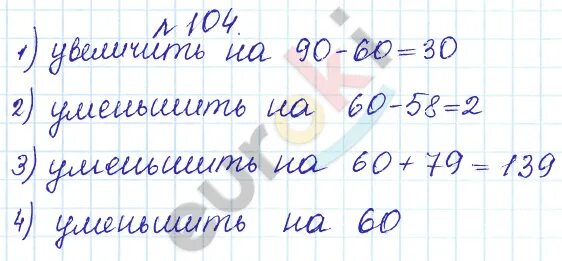 № 104.
1) увеличить на 90-60=30
2) уменьшить на 60-58=2
3) уменьшить на 60+79=139
4) уменьшить на 60
euroki